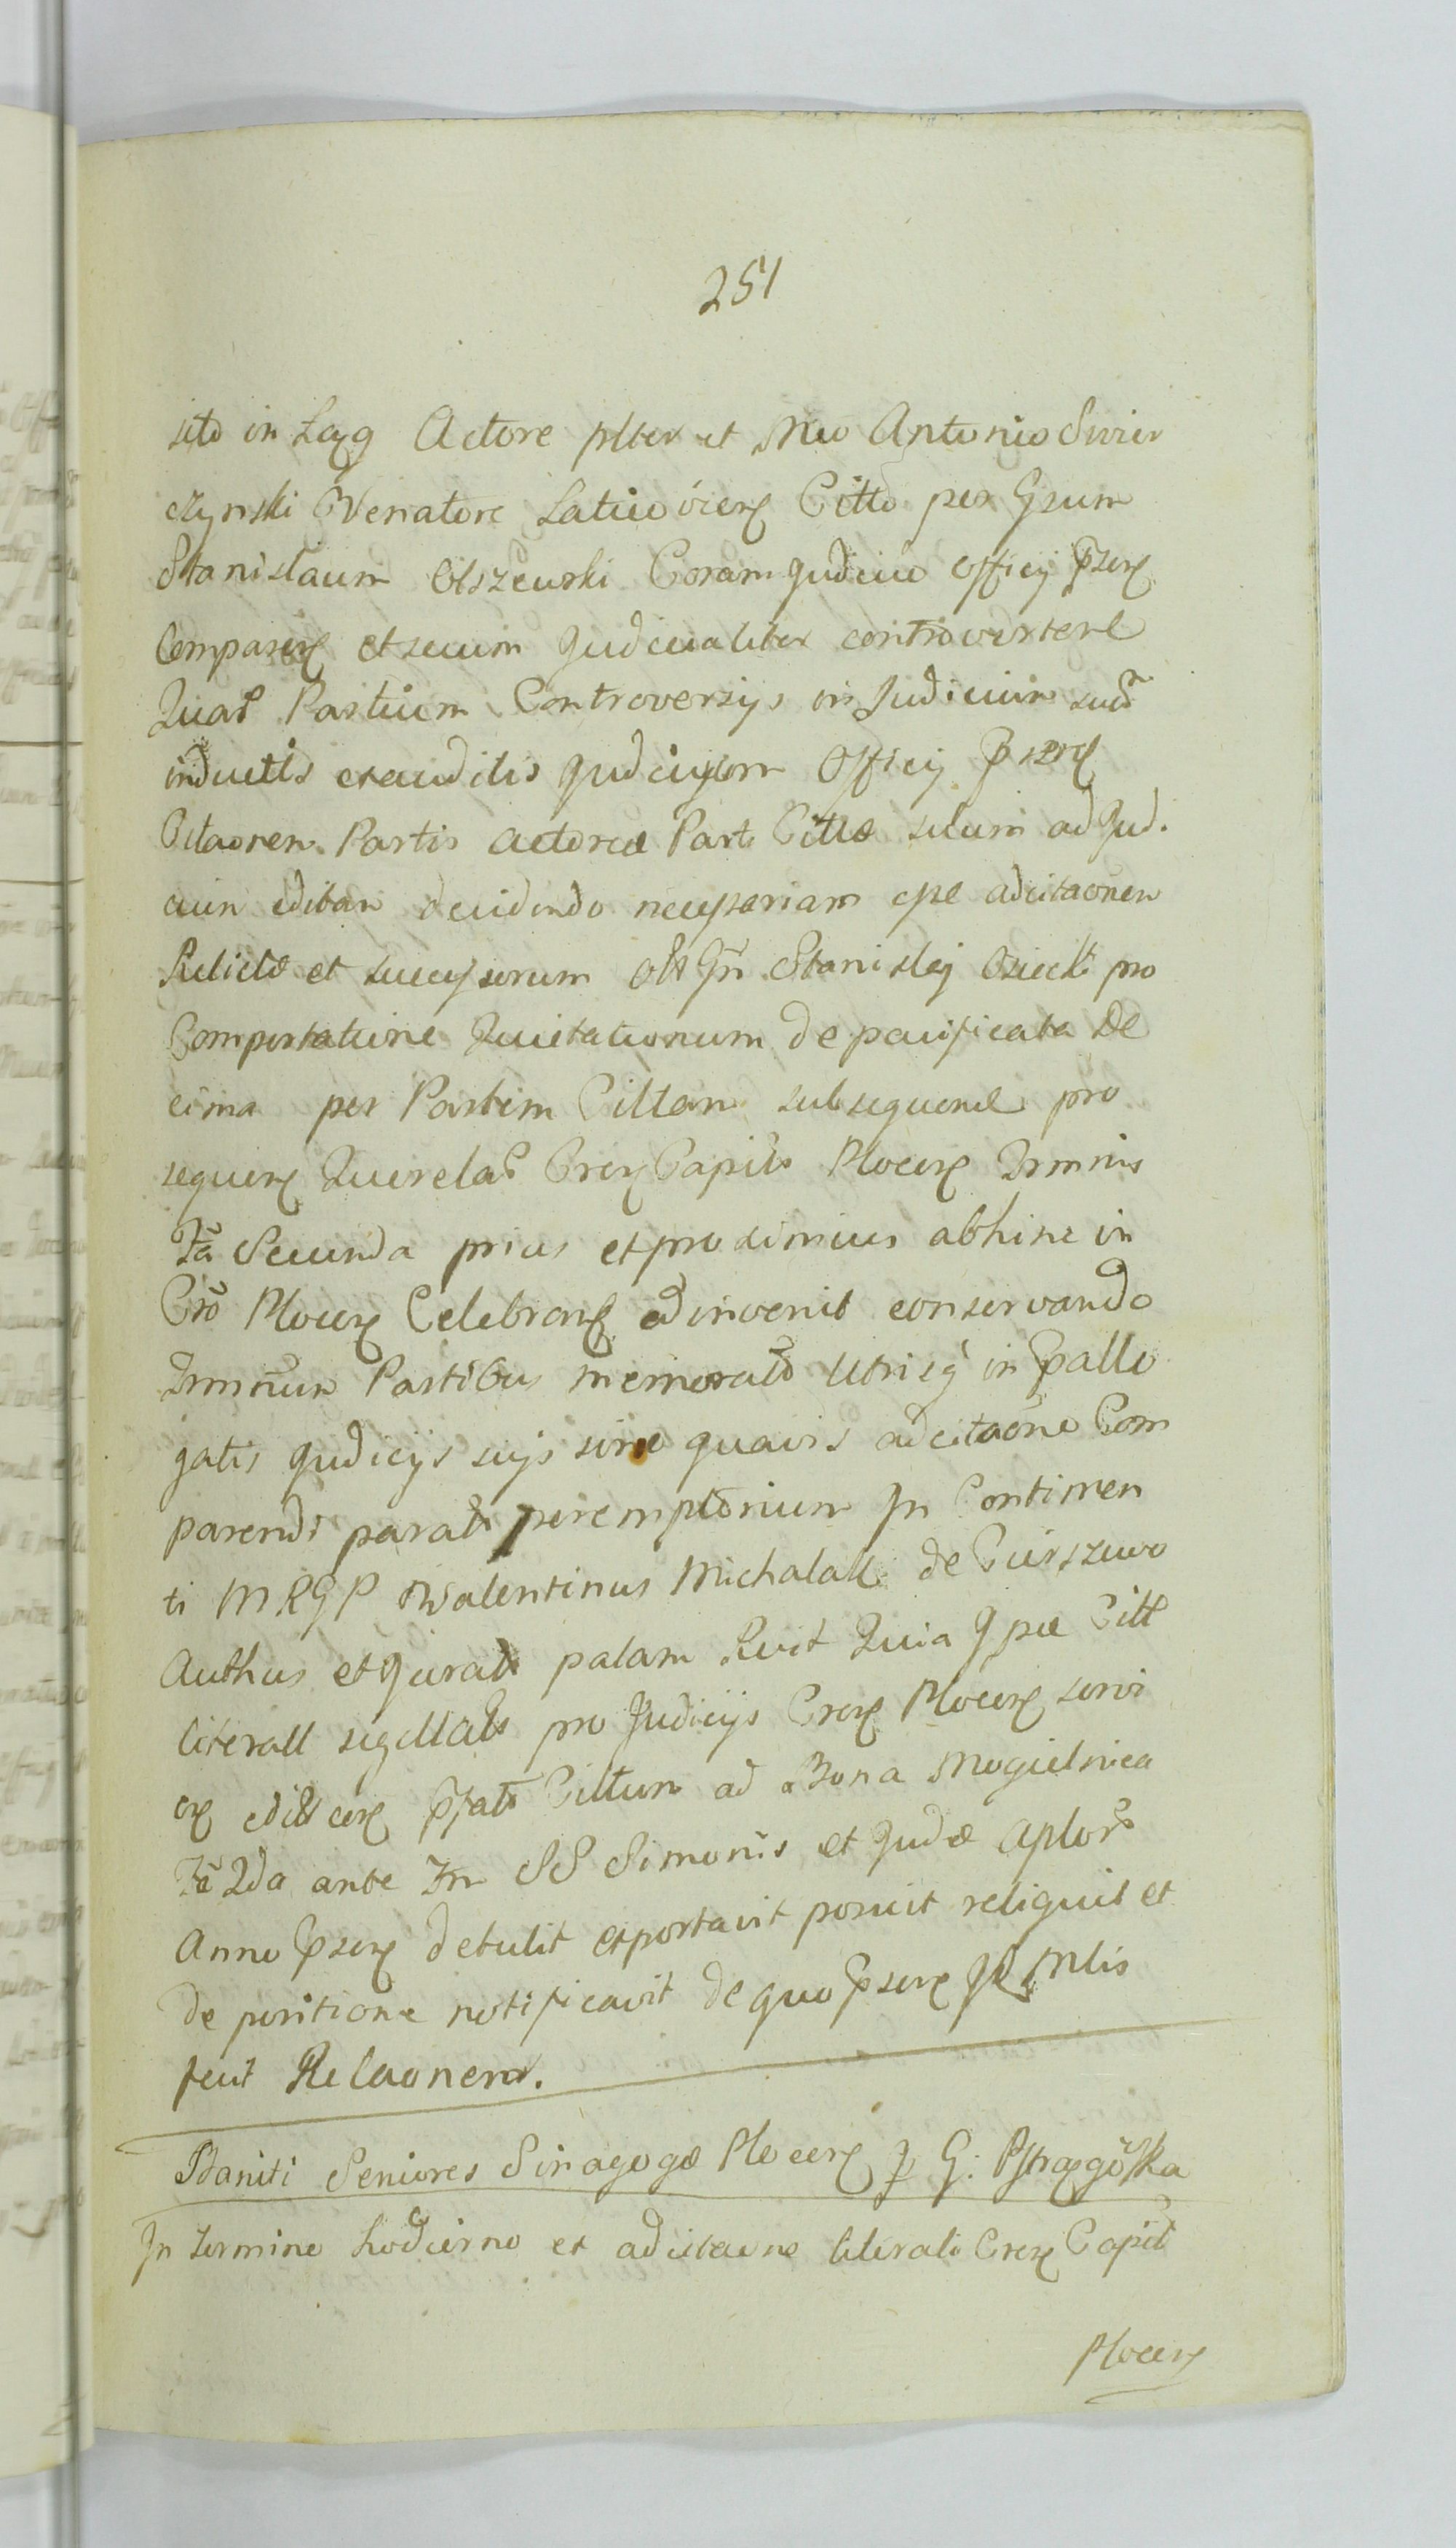 251
sito in Actore plter et Mco Antonio Swier
czynski Venatore Citto per Gsum
Stanislaum Olszewski Coram Judicio Officij Psen
Comparen et secum Judicialiter controverten
Quar Partium Controversijs in Judicium suu
inductis exauditis Judicium Officij Psen
Citaonem Partis Actoreæ Part Cittæ solum ad Jud.
cium editam decidendo necessariam esse adcitaonem
Relictæ et Successorum olt Gn Stanislaj Osiecki pro
Comportatione Quietationum de pacificata De
cima per Partem Cittam subsequen pro
sequen Querelar Cren Capit Plocen Trminis
Fa Secunda prius et proximius abhinc in
Cro Plocen Celebran adinvenit conservando
Trminum Partibus memorat Utrisq in Pralle
gatis Judicijs sujs sine quavis adcitaone Com
parendi parat peremptorium In Continen
ti MRGP Walentinus Michalak de
Authus et Jurat palam Rvit Quia Ipse Citt
literall sigillat pro Judicijs Cren Plocen servi
en edit cen Pfat Cittum ad Bona Mogielnica
Fa 2da ante Fm SS Simonis et Judæ Aplor
Anno Psen detulit et portavit posuit reliquit et
de positione notificavit de quo Psen
fecit Relaonem.
Baniti Seniores Sinagogæ Plocen p G:
In termino hodierno ex adcitaone literali Cren Capit
Plocen